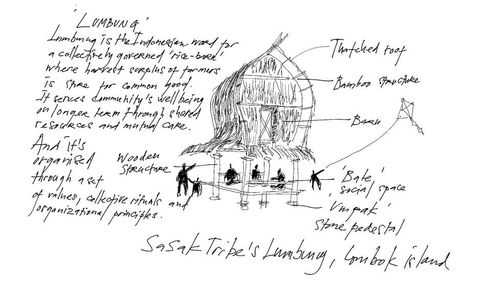 'LUMBUNG'
Lumbung is the Indonesian word for
a collectively governed 'rice-barn'
where harvest surplus of farmers
is store for common good.
It serves community's well being
on longer term through shared
resources and mutual care.
And it's
organised
through a set
of values, collective rituals and
organizational principles.
Thatched roof
Bamboo structure
Barn
Wooden
structure
'Bale'
social space
'Umpak'
Stone pedestal
Sasak Tribe's Lumbung, Lombok island